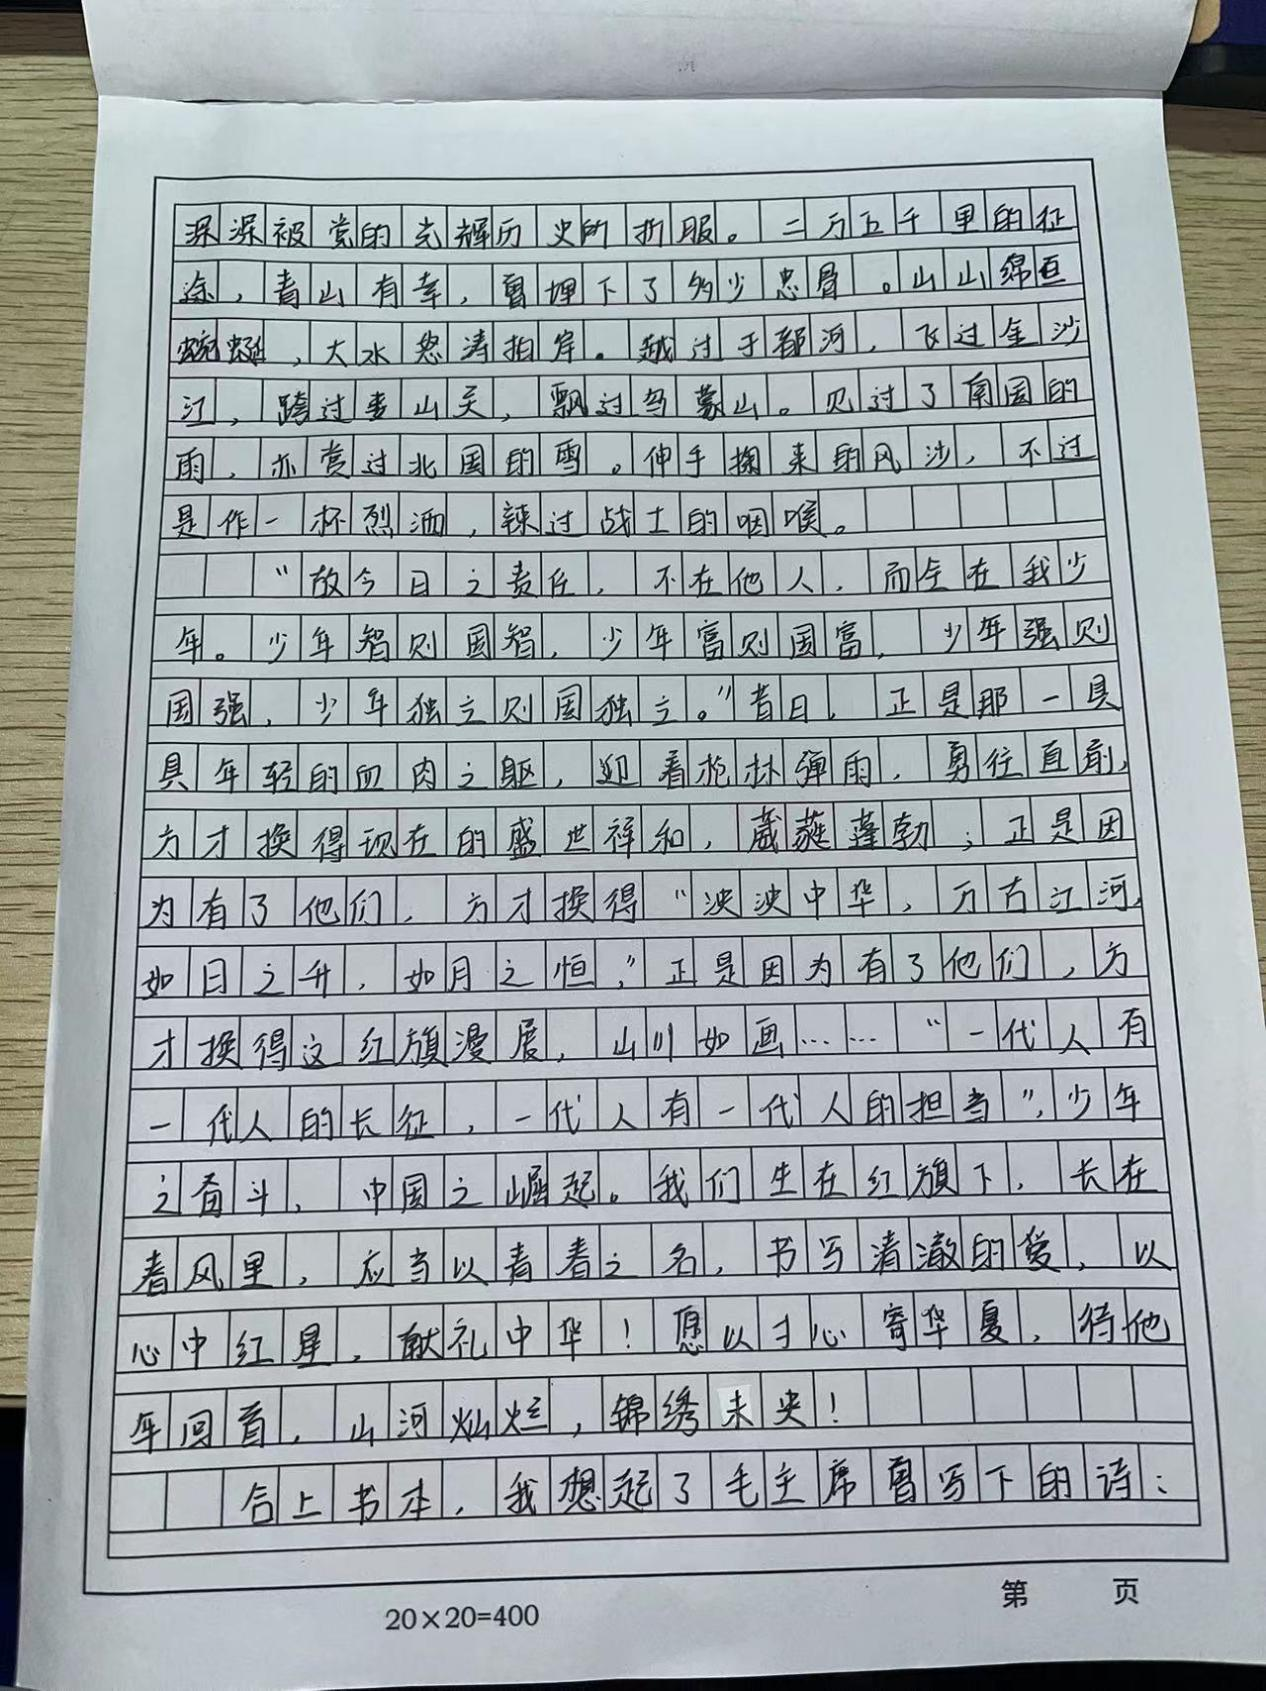 深深被党的光辉历史所折服。二万五千里的征
途，青山有幸，曾埋下了多少忠骨。山山绵亘
蜿蜒，大水怒涛拍岸。越过于都河，飞过金沙
江，跨过娄山关，飘过乌蒙山。见过了南国的
雨，亦赏过北国的雪。伸手掬来的风沙，不过
是作一杯烈酒，辣过战士的咽喉。
“故今日之责任，不在他人，而全在我少
年。少年智则国智，少年富则国富，少年强则
国强，少年独立则国独立。”昔日，正是那一具
具年轻的血肉之躯，迎着枪林弹雨，勇往直前，
方才换得现在的盛世祥和，葳蕤蓬勃；正是因
为有了他们，方才换得“泱泱中华，万古江河，
如日之升，如月之恒；”正是因为有了他们，方
才换得这红旗漫展，山川如画……“一代人有
一代人的长征，一代人有一代人的担当”，少年
之奋斗，中国之崛起。我们生在红旗下，长在
春风里，应当以青春之名，书写清澈的爱，以
心中红星，献礼中华！愿以寸心寄华夏，待他
年回首，山河灿烂，锦绣未央！
合上书本，我想起了毛主席曾写下的诗：
20×20=400
第 页